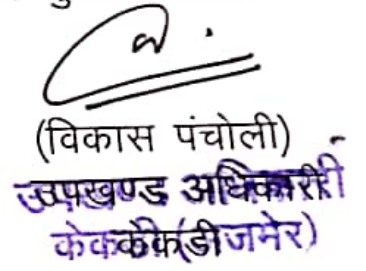 (विकास पंचोली)
उपखण्ड अधिकारी
केकड़ी